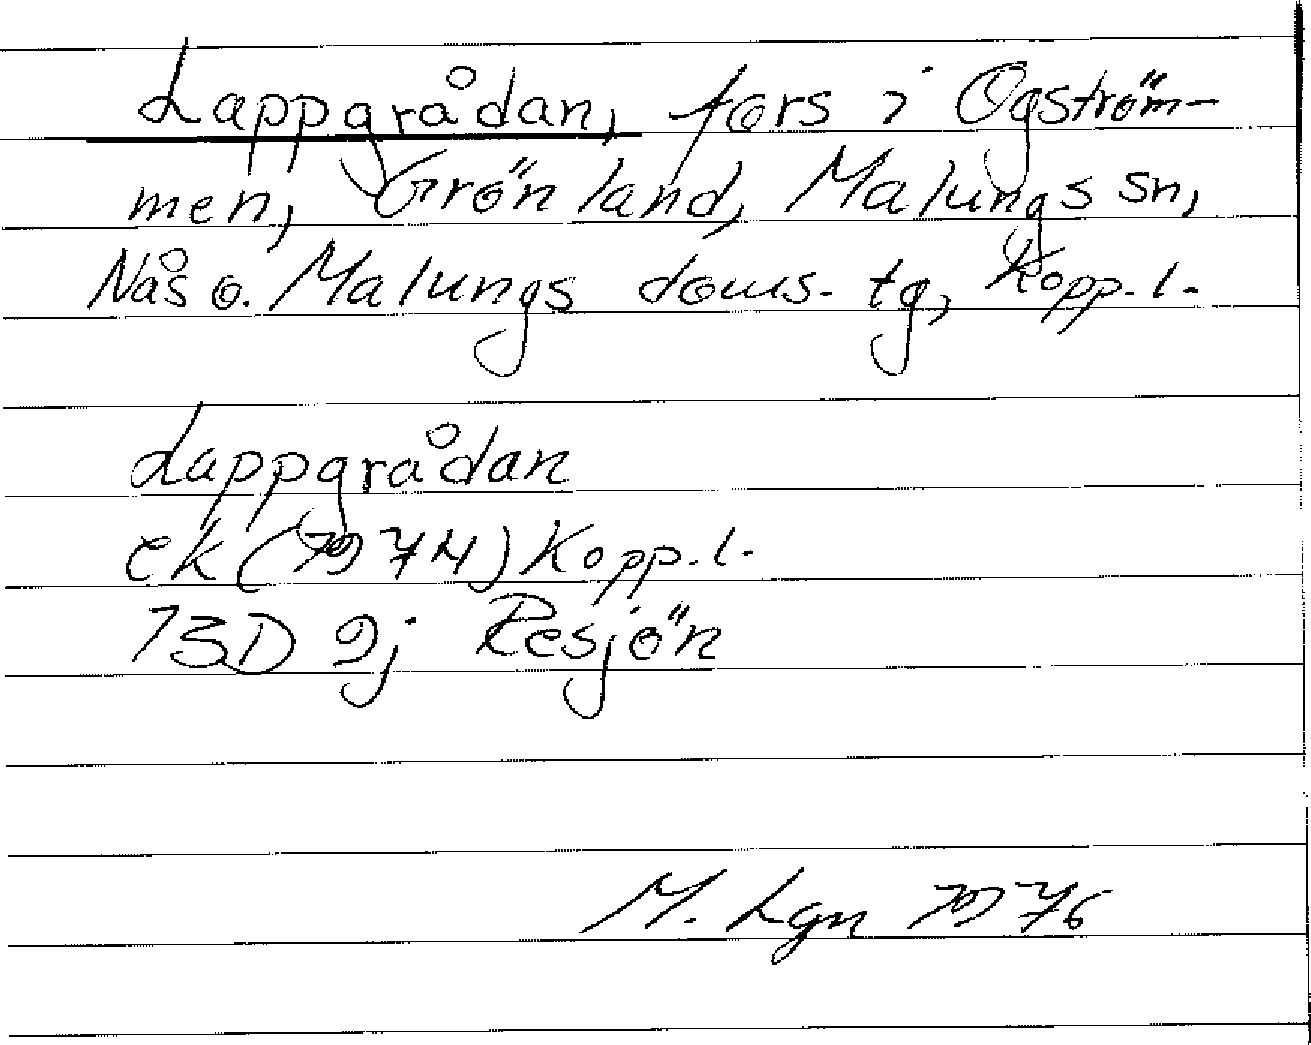 Lappgrådan, fors i Ogström-
men, Grönland, Malungs sn,
Nås o. Malungs doms. tg, Kopp. l.
Lappgrådan
ek (1974) Kopp. l.
13D 9j Resjön
M. Lgn 1976